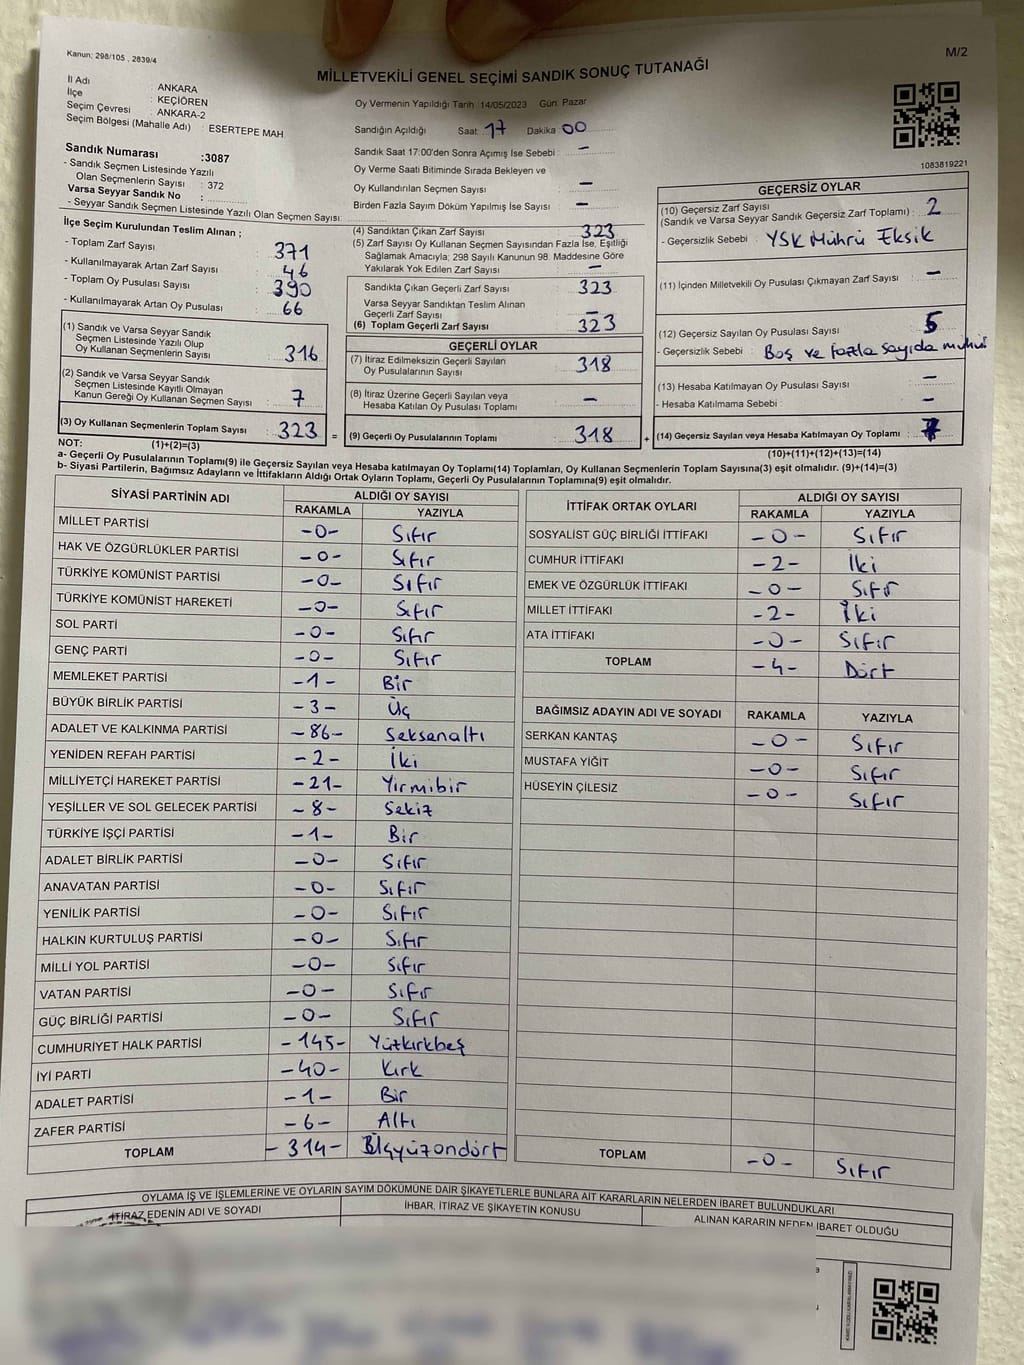 Kanun: 298/105 , 2839/4
M/2
MİLLETVEKİLİ GENEL SEÇİMİ SANDIK SONUÇ TUTANAĞI
İl Adı : ANKARA
İlçe : KEÇİÖREN
Seçim Çevresi : ANKARA-2
Seçim Bölgesi (Mahalle Adı) : ESERTEPE MAH.
Sandık Numarası :3087
- Sandık Seçmen Listesinde Yazılı
Olan Seçmenlerin Sayısı : 372
Varsa Seyyar Sandık No :
- Seyyar Sandık Seçmen Listesinde Yazılı Olan Seçmen Sayısı:
Oy Vermenin Yapıldığı Tarih :14/05/2023 Gün: Pazar
Sandığın Açıldığı Saat 17 Dakika 00
Sandık Saat 17:00'den Sonra Açımış İse Sebebi : -
Oy Verme Saati Bitiminde Sırada Bekleyen ve
Oy Kullandırılan Seçmen Sayısı -
Birden Fazla Sayım Döküm Yapılmış İse Sayısı -
1083819221
İlçe Seçim Kurulundan Teslim Alınan ;
- Toplam Zarf Sayısı : 371
- Kullanılmayarak Artan Zarf Sayısı : 46
- Toplam Oy Pusulası Sayısı : 390
- Kullanılmayarak Artan Oy Pusulası : 66
(1) Sandık ve Varsa Seyyar Sandık
Seçmen Listesinde Yazılı Olup
Oy Kullanan Seçmenlerin Sayısı : 316
(2) Sandık ve Varsa Seyyar Sandık
Seçmen Listesinde Kayıtlı Olmayan
Kanun Gereği Oy Kullanan Seçmen Sayısı : 7
(3) Oy Kullanan Seçmenlerin Toplam Sayısı : 323
(4) Sandıktan Çıkan Zarf Sayısı : 323
(5) Zarf Sayısı Oy Kullanan Seçmen Sayısından Fazla İse, Eşitliği
Sağlamak Amacıyla; 298 Sayılı Kanunun 98. Maddesine Göre
Yakılarak Yok Edilen Zarf Sayısı : -
Sandıkta Çıkan Geçerli Zarf Sayısı : 323
Varsa Seyyar Sandıktan Teslim Alınan
Geçerli Zarf Sayısı : -
(6) Toplam Geçerli Zarf Sayısı : 323
GEÇERLİ OYLAR
(7) İtiraz Edilmeksizin Geçerli Sayılan
Oy Pusulalarının Sayısı : 318
(8) İtiraz Üzerine Geçerli Sayılan veya
Hesaba Katılan Oy Pusulası Toplamı : -
= (9) Geçerli Oy Pusulalarının Toplamı : 318 +
GEÇERSİZ OYLAR
(10) Geçersiz Zarf Sayısı : 2
(Sandık ve Varsa Seyyar Sandık Geçersiz Zarf Toplamı)
- Geçersizlik Sebebi : YSK Mührü Eksik
(11) İçinden Milletvekili Oy Pusulası Çıkmayan Zarf Sayısı : -
(12) Geçersiz Sayılan Oy Pusulası Sayısı : 5
- Geçersizlik Sebebi : Boş ve fazla sayıda mühür
(13) Hesaba Katılmayan Oy Pusulası Sayısı : -
- Hesaba Katılmama Sebebi : -
(14) Geçersiz Sayılan veya Hesaba Katılmayan Oy Toplamı : 7
NOT: (1)+(2)=(3)
(10)+(11)+(12)+(13)=(14)
a- Geçerli Oy Pusulalarının Toplamı(9) ile Geçersiz Sayılan veya Hesaba katılmayan Oy Toplamı(14) Toplamları, Oy Kullanan Seçmenlerin Toplam Sayısına(3) eşit olmalıdır. (9)+(14)=(3)
b- Siyasi Partilerin, Bağımsız Adayların ve İttifakların Aldığı Ortak Oyların Toplamı, Geçerli Oy Pusulalarının Toplamına(9) eşit olmalıdır.
SİYASİ PARTİNİN ADI ALDIĞI OY SAYISI
RAKAMLA YAZIYLA
MİLLET PARTİSİ -0- Sıfır
HAK VE ÖZGÜRLÜKLER PARTİSİ -0- Sıfır
TÜRKİYE KOMÜNİST PARTİSİ -0- Sıfır
TÜRKİYE KOMÜNİST HAREKETİ -0- Sıfır
SOL PARTİ -0- Sıfır
GENÇ PARTİ -0- Sıfır
MEMLEKET PARTİSİ -1- Bir
BÜYÜK BİRLİK PARTİSİ -3- Üç
ADALET VE KALKINMA PARTİSİ -86- Seksenaltı
YENİDEN REFAH PARTİSİ -2- İki
MİLLİYETÇİ HAREKET PARTİSİ -21- Yirmibir
YEŞİLLER VE SOL GELECEK PARTİSİ -8- Sekiz
TÜRKİYE İŞÇİ PARTİSİ -1- Bir
ADALET BİRLİK PARTİSİ -0- Sıfır
ANAVATAN PARTİSİ -0- Sıfır
YENİLİK PARTİSİ -0- Sıfır
HALKIN KURTULUŞ PARTİSİ -0- Sıfır
MİLLİ YOL PARTİSİ -0- Sıfır
VATAN PARTİSİ -0- Sıfır
GÜÇ BİRLİĞİ PARTİSİ -0- Sıfır
CUMHURİYET HALK PARTİSİ -145- Yüzkırkbeş
İYİ PARTİ -40- Kırk
ADALET PARTİSİ -1- Bir
ZAFER PARTİSİ -6- Altı
TOPLAM -314- Üçyüzondört
İTTİFAK ORTAK OYLARI ALDIĞI OY SAYISI
RAKAMLA YAZIYLA
SOSYALİST GÜÇ BİRLİĞİ İTTİFAKI -0- Sıfır
CUMHUR İTTİFAKI -2- İki
EMEK VE ÖZGÜRLÜK İTTİFAKI -0- Sıfır
MİLLET İTTİFAKI -2- İki
ATA İTTİFAKI -0- Sıfır
TOPLAM -4- Dört
BAĞIMSIZ ADAYIN ADI VE SOYADI RAKAMLA YAZIYLA
SERKAN KANTAŞ -0- Sıfır
MUSTAFA YİĞİT -0- Sıfır
HÜSEYİN ÇİLESİZ -0- Sıfır
TOPLAM -0- Sıfır
OYLAMA İŞ VE İŞLEMLERİNE VE OYLARIN SAYIM DÖKÜMÜNE DAİR ŞİKAYETLERLE BUNLARA AİT KARARLARIN NELERDEN İBARET BULUNDUKLARI
İTİRAZ EDENİN ADI VE SOYADI İHBAR, İTİRAZ VE ŞİKAYETİN KONUSU ALINAN KARARIN NEDEN İBARET OLDUĞU